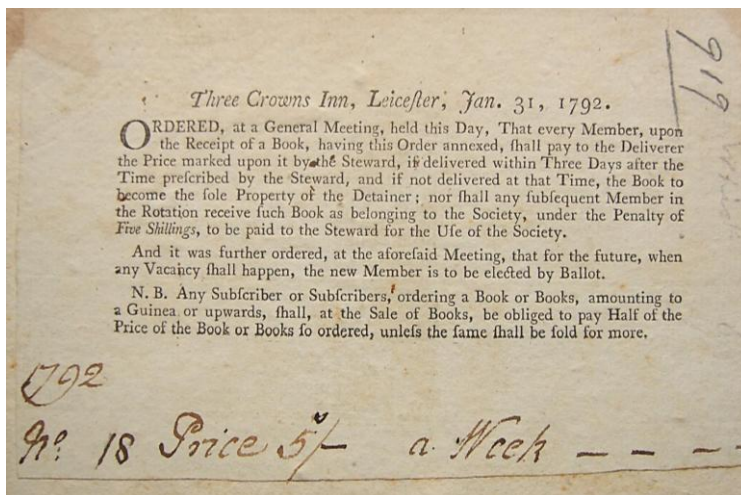 919
Three Crowns Inn, Leiceſter, Jan. 31, 1792.
ORDERED, at a General Meeting, held this Day, That every Member, upon
the Receipt of a Book, having this Order annexed, ſhall pay to the Deliverer
the Price marked upon it by the Steward, if delivered within Three Days after the
Time preſcribed by the Steward, and if not delivered at that Time, the Book to
become the ſole Property of the Detainer; nor ſhall any ſubſequent Member in
the Rotation receive ſuch Book as belonging to the Society, under the Penalty of
Five Shillings, to be paid to the Steward for the Uſe of the Society.
And it was further ordered, at the aforeſaid Meeting, that for the future, when
any Vacancy ſhall happen, the new Member is to be elected by Ballot.
N. B. Any Subſcriber or Subſcribers, ordering a Book or Books, amounting to
a Guinea or upwards, ſhall, at the Sale of Books, be obliged to pay Half of the
Price of the Book or Books ſo ordered, unleſs the ſame ſhall be ſold for more.
1792
No. 18 Price 5/- a Week - - - -